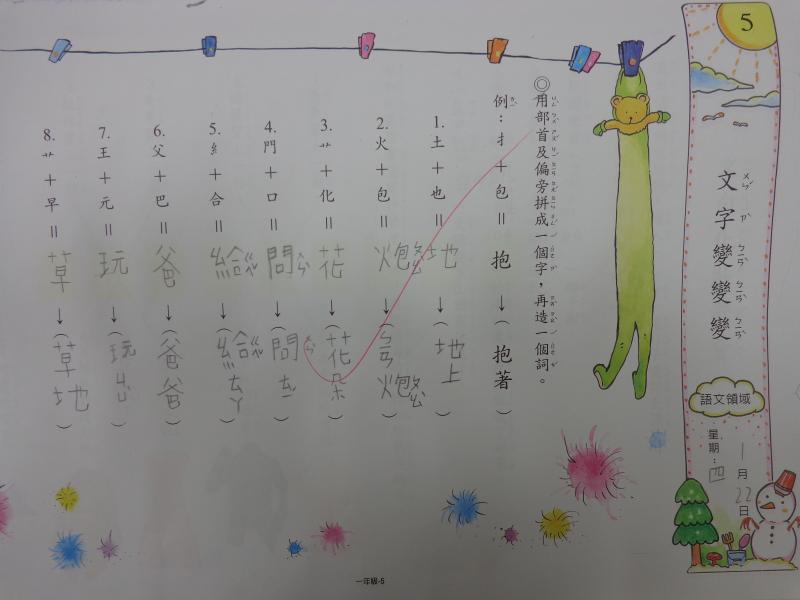 5
文字變變變
語文領域
星期：四
1月22日
◎用部首及偏旁拼成一個字，再造一個詞。
例：扌＋包＝抱→（抱著）
1. 土＋也＝地→（地上）
2. 火＋包＝炮→（ㄉㄚˋ炮）
3. 艹＋化＝花→（花朵）
4. 門＋口＝問→（問
5. 糹＋合＝給ㄍㄟˇ→（給ㄍㄟˇㄊㄚ）
6. 父＋巴＝爸→（爸爸）
7. 王＋元＝玩→（玩
8. 艹＋早＝草→（草地）
一年級-5